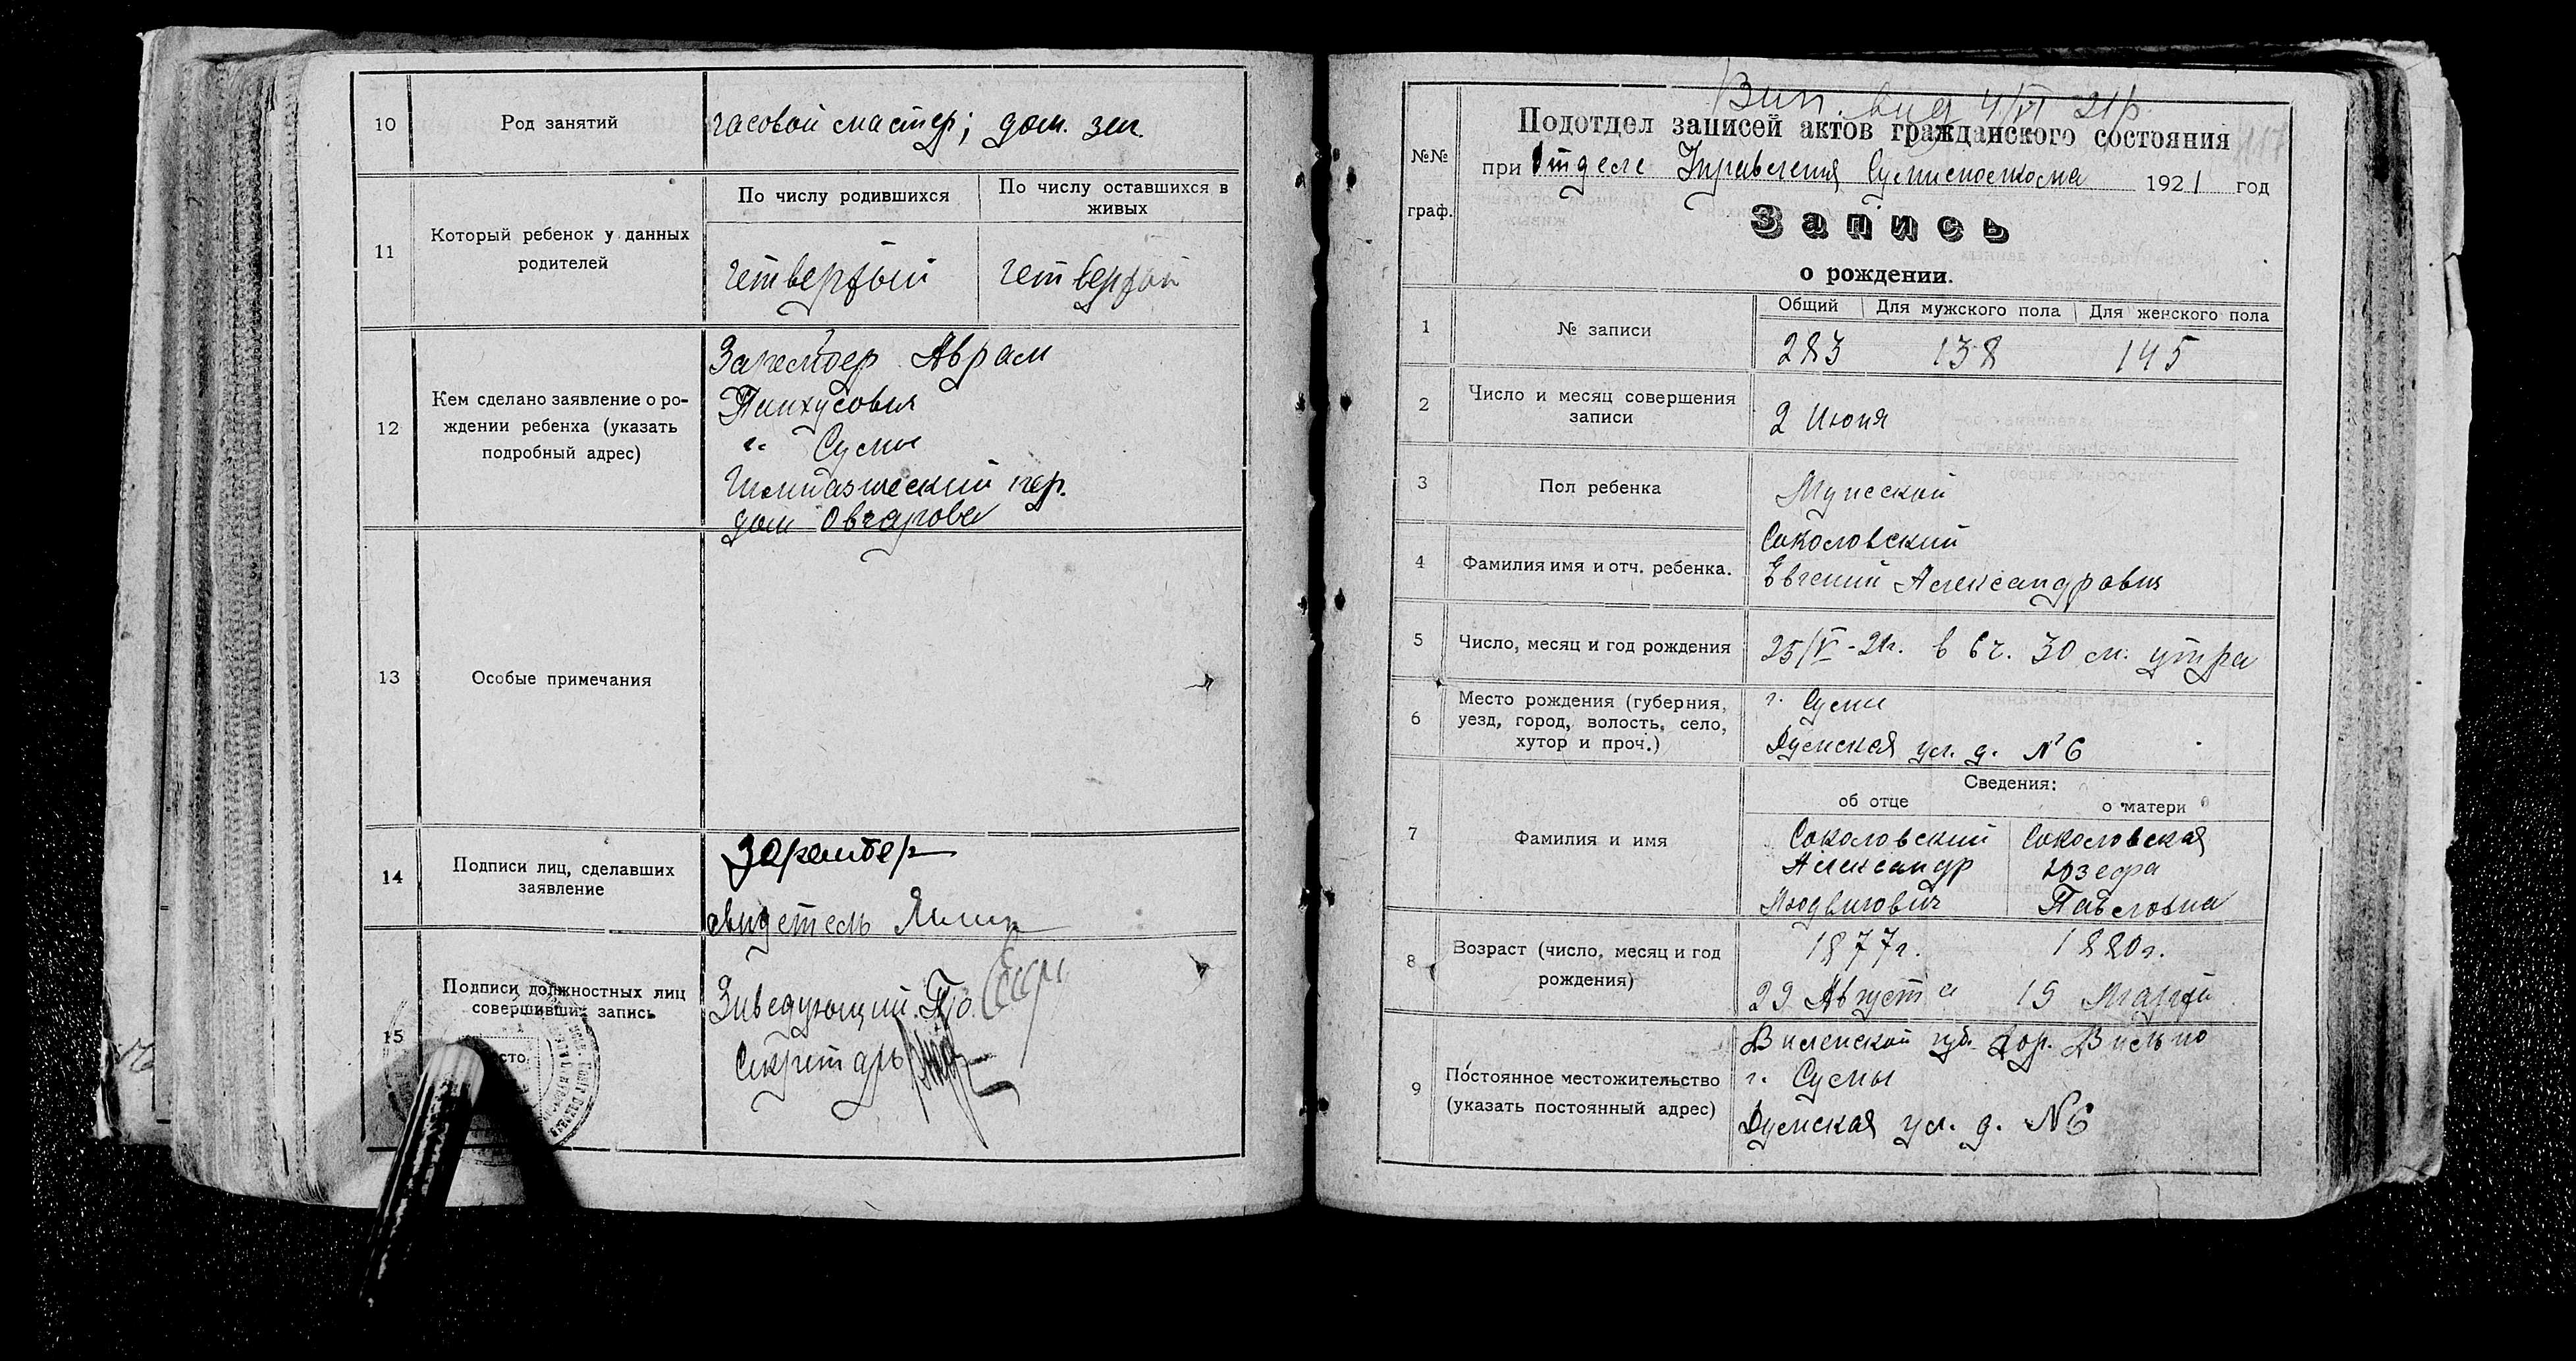 10
Род занятий
часовой мастер; дом. зан.
11
Который ребенок у данных
родителей
По числу родившихся
По числу оставшихся в
живых
четвертый
четвертый
12
Кем сделано заявление о ро-
ждении ребенка (указать
подробный адрес)
Аврам
Пинхусович
г. Сумы
Гимназический пер.
дом Овчарова
13
Особые примечания
14
Подписи лиц, сделавших
заявление
свидетель
15
Подписи должностных лиц
совершивших запись
Заведующий По.
Секретарь
№№
граф.
Вип. вид 4/VI 21р.
Подотдел записей актов гражданского состояния
при Отделе Управления 1921 год
Запись
о рождении.
1
№ записи
Общий
Для мужского пола
Для женского пола
283
138
145
2
Число и месяц совершения
записи
2 Июня
3
Пол ребенка
Мужской
4
Фамилия имя и отч. ребенка.
Соколовский
Евгений Александрович
5
Число, месяц и год рождения
25/V-21г. в 6 ч. 30 м. утра
6
Место рождения (губерния,
уезд, город, волость, село,
хутор и проч.)
г. Сумы
Думская ул. д. №6
7
Фамилия и имя
Сведения:
об отце
о матери
Соколовский
Александр
Людвигович
Соколовская
Юзефа
Павловна
8
Возраст (число, месяц и год
рождения)
1877г.
29 Августа
1880г.
19 Марта
9
Постоянное местожительство
(указать постоянный адрес)
Виленской губ. гор. Вильно
г. Сумы
Думская ул. д. №6